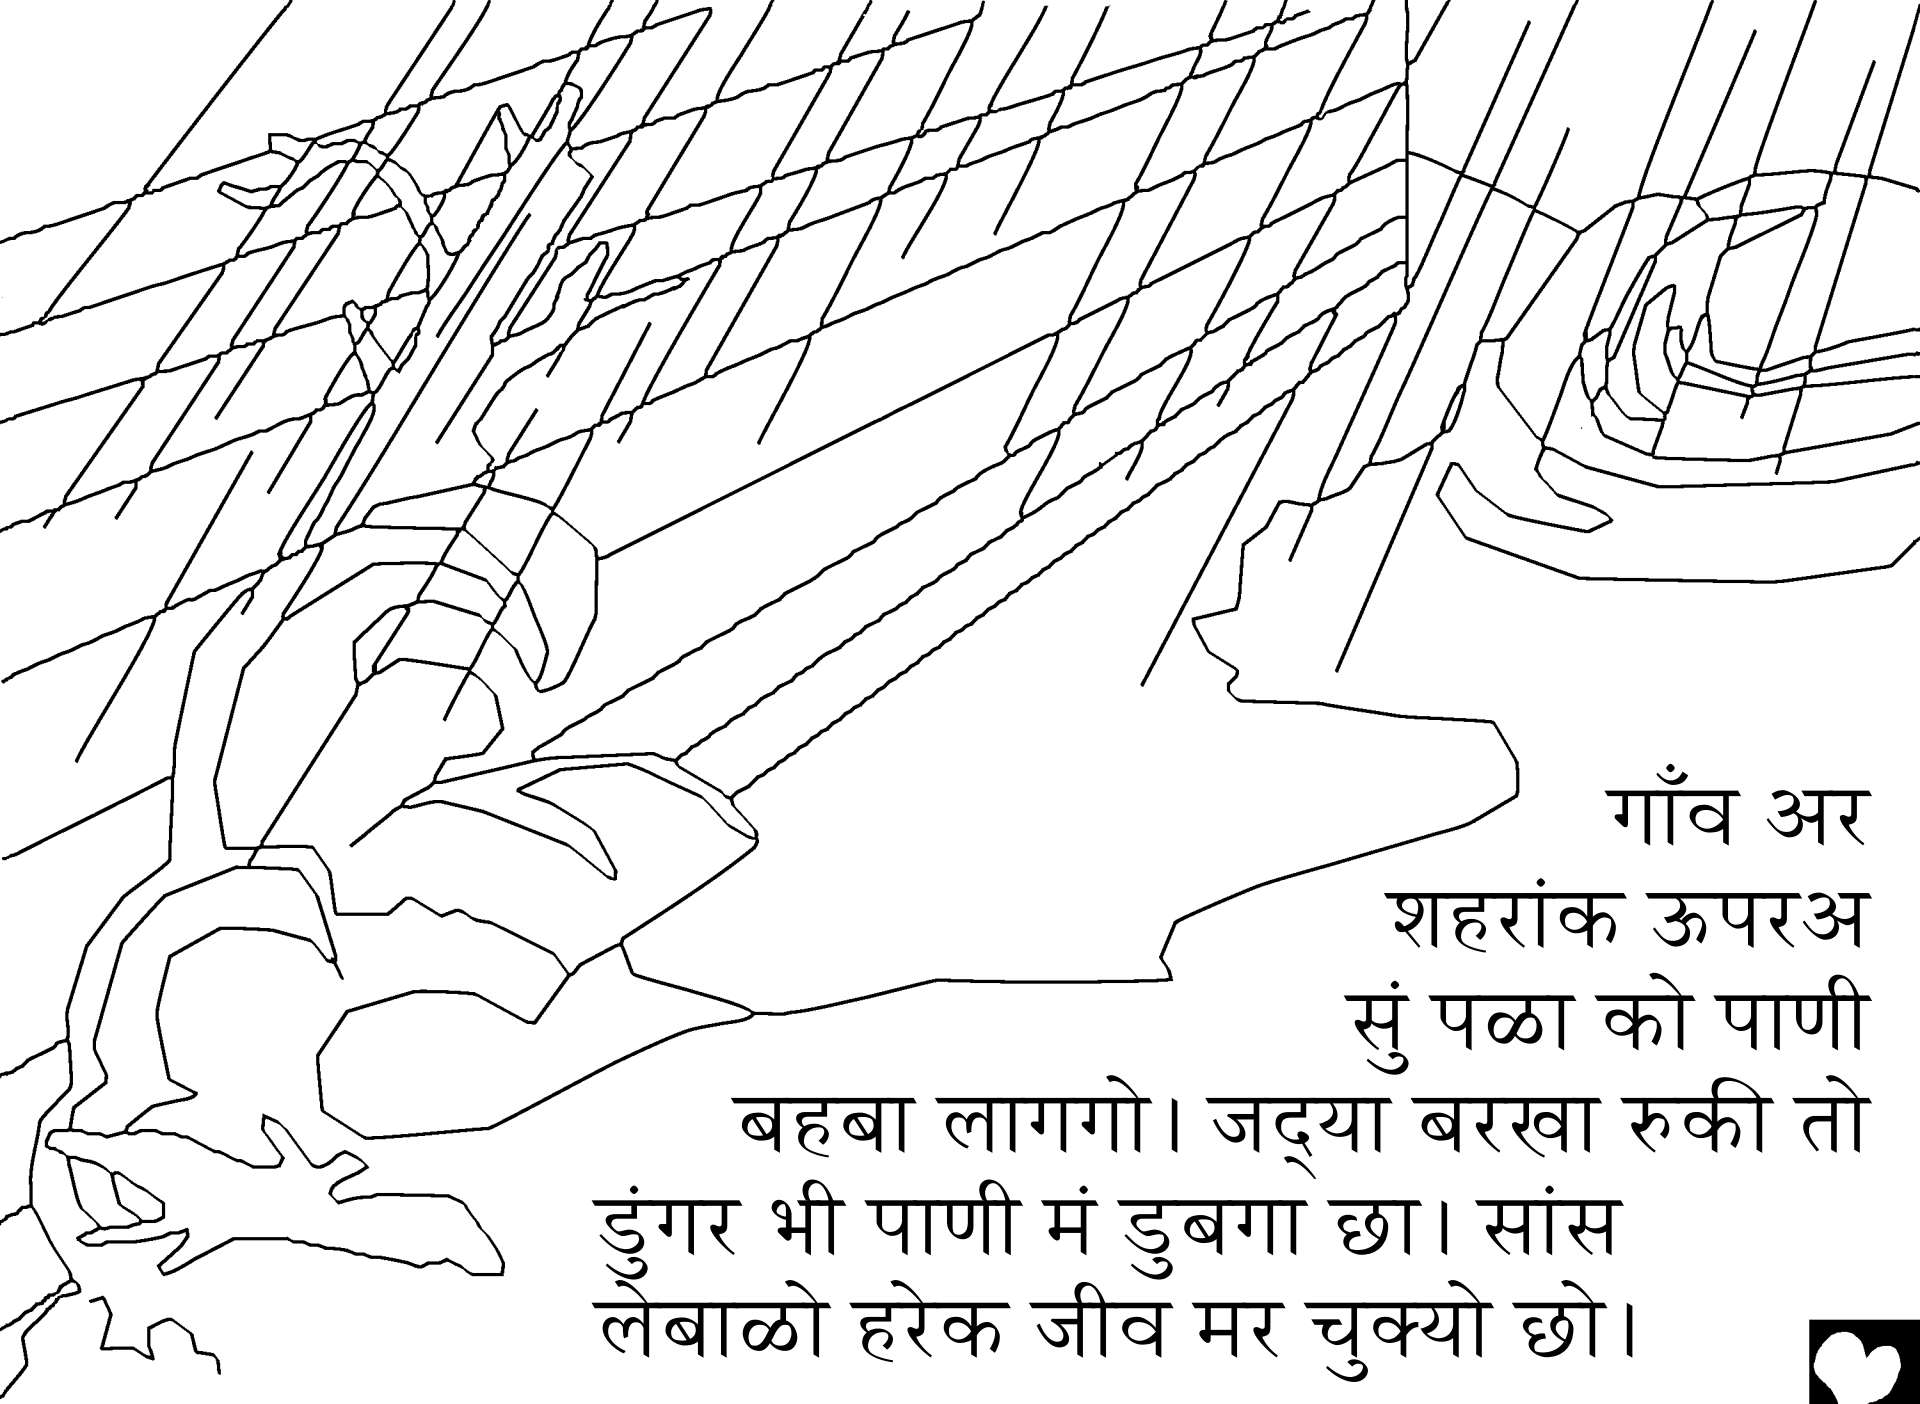 गाँव अर
शहरांक ऊपरअ
सुं पळा को पाणी
बहबा लागगो। जद्या बरखा रुकी तो
डुंगर भी पाणी मं डुबगा छा। सांस
लेबाळो हरेक जीव मर चुक्यो छो।